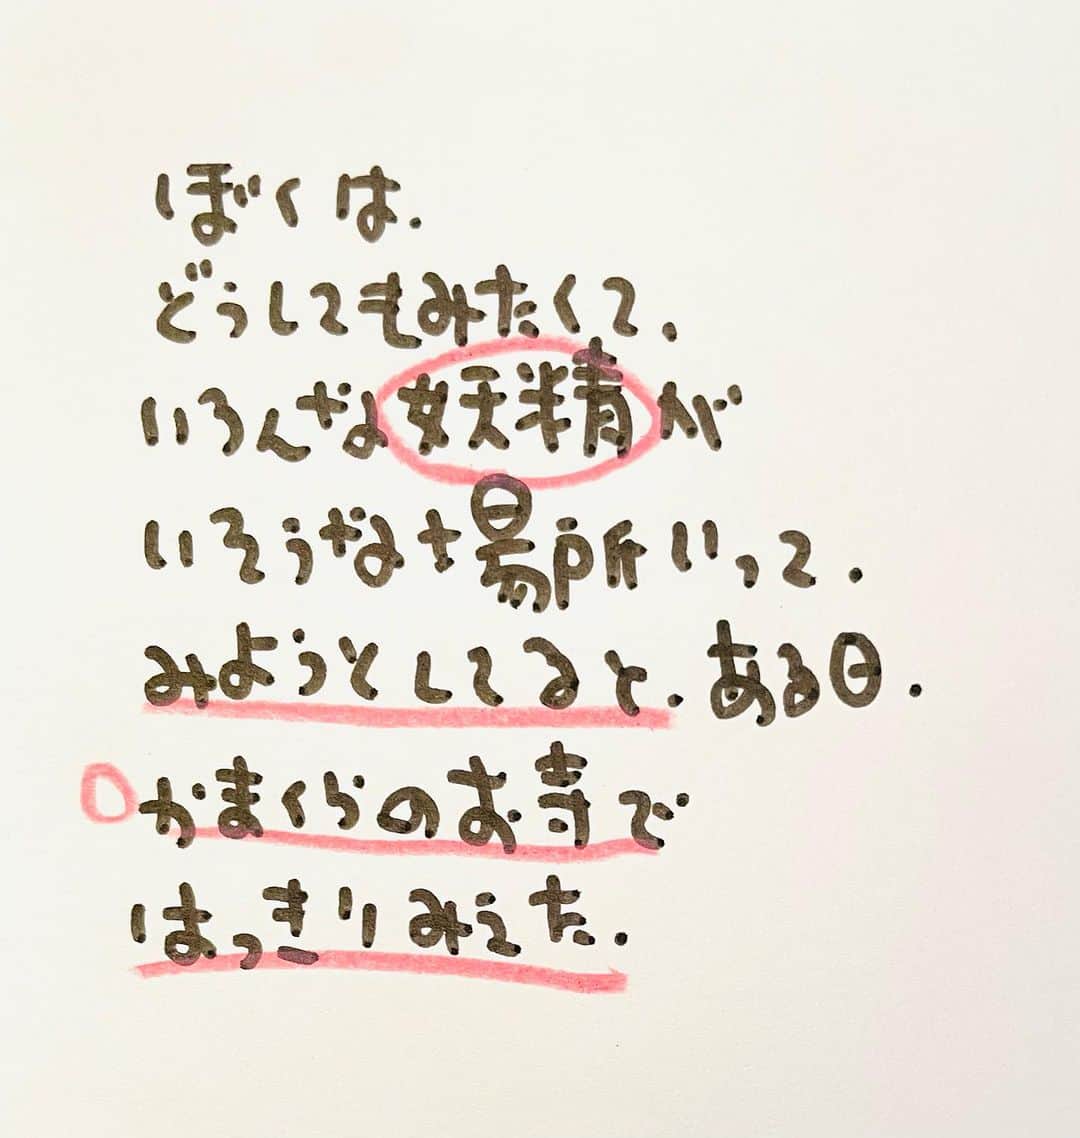 ぼくは.
どうしてもみたくて.
いろんな妖精が
いそうな場所いって.
みようとしてると.ある日.
かまくらのお寺で
はっきりみえた.